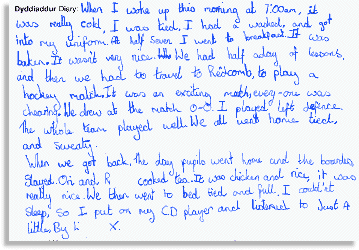 Dyddiaddur Diary: When I woke up this morning at 7:00am, it
was really cold, I was tied, I had a washed, and got
into my uniform. At half Seven I went to breakfast. It was
baken. It wasn't very nice. We had half a day of lessons,
and then we had to travel to Redcomb, to play a
hockey match. It was an exciting match, every-one was
chearing. We drew at the match 0-0. I played left defence.
The whole team played well. We all went home tied,
and sweaty.
When we got back, the day pupils went home and the boarders
stayed. Oh and R cooked tea. It was chicken and rice, it was
really nice. We then went to bed tied and full. I could'et
sleep, so I put on my CD player and listened to Just A
little, By Li X.